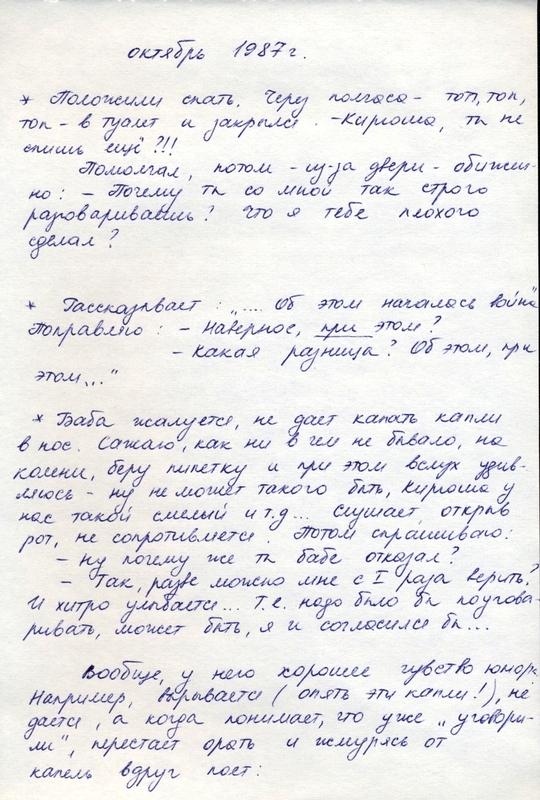 октябрь 1987г.
* Положили спать. Через полчаса - топ, топ,
топ - в туалет и закрылся. - Кирюша, ты не
спишь ещё ?!!
Помолчал, потом - из-за двери - обижен-
но: - Почему ты со мной так строго
разговариваешь? Что я тебе плохого
сделал?
* Рассказывает: „.... Об этом началась война"
Поправляю: - Наверное, при этом?
- Какая разница? Об этом, при
этом..."
* Баба жалуется, не дает капать капли
в нос. Сажаю, как ни в чем не бывало, на
колени, беру пипетку и при этом вслух удив-
ляюсь - ну не может такого быть, Кирюша у
нас такой смелый и т.д... Слушает открыв
рот, не сопротивляется. Потом спрашиваю:
- Ну почему же ты бабе отказал?
- Так, разве можно мне с I раза верить?
И хитро улыбается... Т.е. надо было бы поугова-
ривать, может быть, я и согласился бы...
Вообще, у него хорошее чувство юмора.
Например, вырывается (опять эти капли!), не
дается, а когда понимает, что уже „уговори-
ли", перестает орать и жмурясь от
капель вдруг поет: